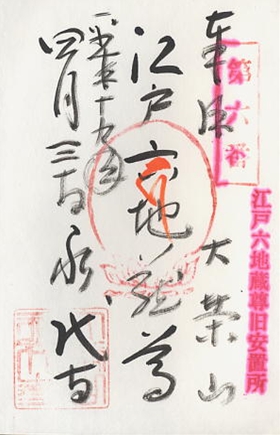 第六番
江戸六地蔵尊旧安置所
奉拝
大栄山
江戸六地蔵尊
平成十九年
四月三日
永代寺